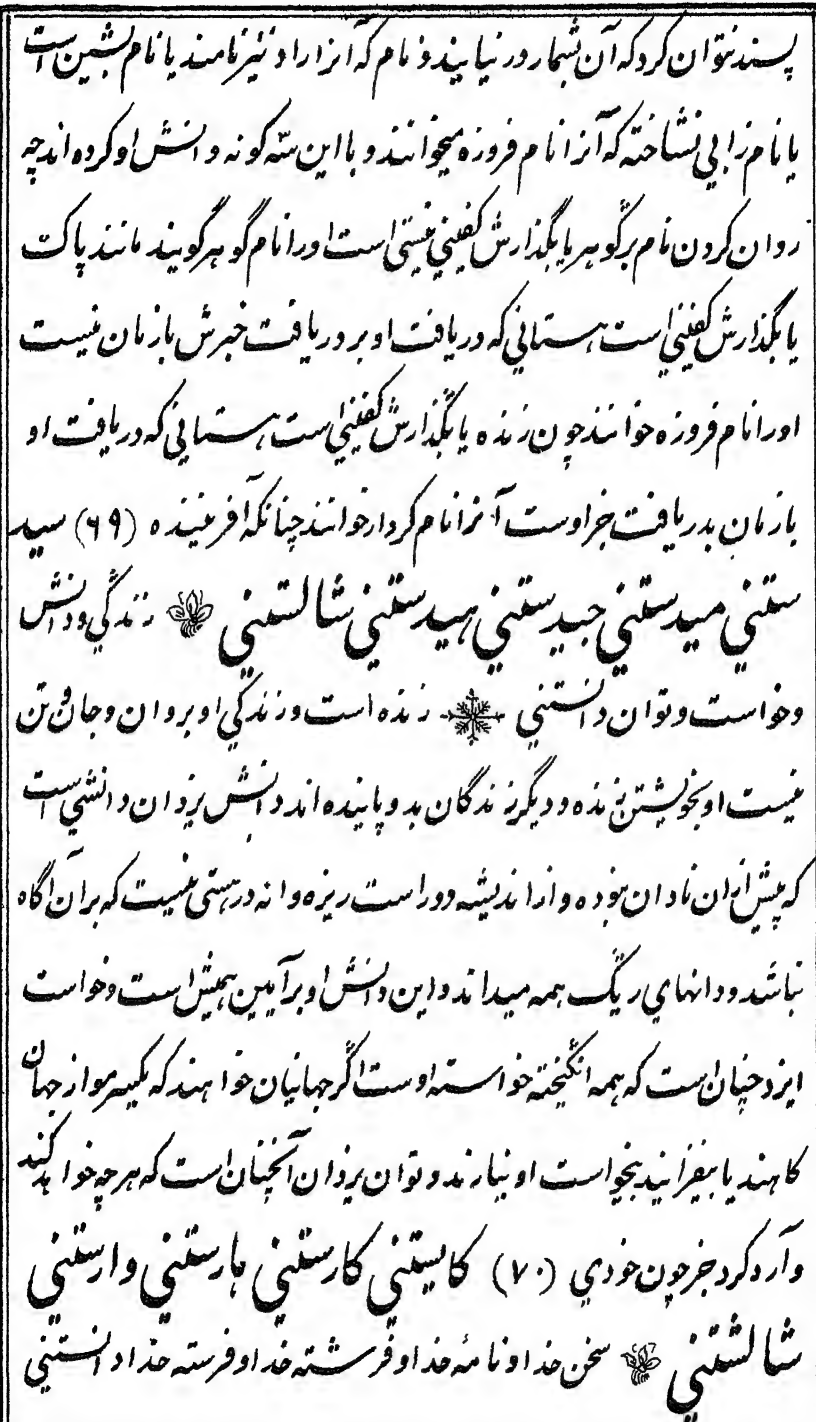 پسند نتوان کرد که آن شمار در نیایند و نام که آنرا راد نیز نامند یا نام بشین است
یا نام زابی نشاخته که آنرا نام فروزه میخوانند و با این سه گونه دانش او کرده اند چه
روان کردن نام بر گوهر یا بگذارش کفینی نیستی است اورا نام گوهر گویند مانند پاک
یا بگذارش کفینی است هستانی که دریافت او بر دریافت خبرش بازمان نیست
اورا نام فروزه خوانند چون زنده یا بگذارش کفینی است هستانی که دریافت او
بازمان بدریافت جز اوست آنرا نام کردار خوانند چنانکه آفریننده (۶۹) سید
ستنی میدستنی جیدستنی هیدستنی شالستنی زندگی و دانش
وخواست و توان دانستنی زنده است و زندگی او بروان و جان و تن
نیست او بخویشتن زنده و دیگر زندگان بدو پاینده اند دانش یزدان دانشی است
که پیش ازان نادان نبوده و از اندیشه دور است ریزه وانه در هستی نیست که بران آگاه
نباشد و دانهای ریگ همه میداند و این دانش او بر آیین همیش است وخواست
ایزد چنان است که همه انگیخته خواسته اوست اگر جهانیان خواهند که یکسر مو از جهان
کاهند یا بیفزایند بیخواست او نیارند و توان یزدان آنچنان است که هر چه خواهد کند
و آرد کرد جز چون خودی (۷۰) کایستنی کارستنی هارستنی وارستنی
شالشتنی سخن خدا و نامهٔ خدا و فرشته خدا و فرسته خدا دانستنی